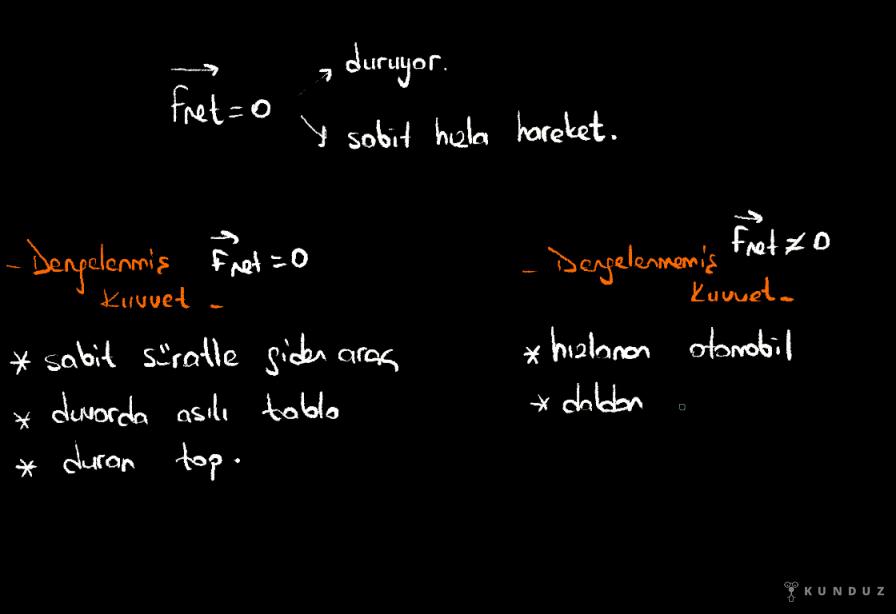 duruyor.
Fnet = 0
sabit hızla hareket.
- Dengelenmiş Kuvvet -
Fnet = 0
* sabit süratle giden araç
* duvarda asılı tablo
* duran top.
- Dengelenmemiş Kuvvet -
Fnet ≠ 0
* hızlanan otomobil
* daldan
KUNDUZ